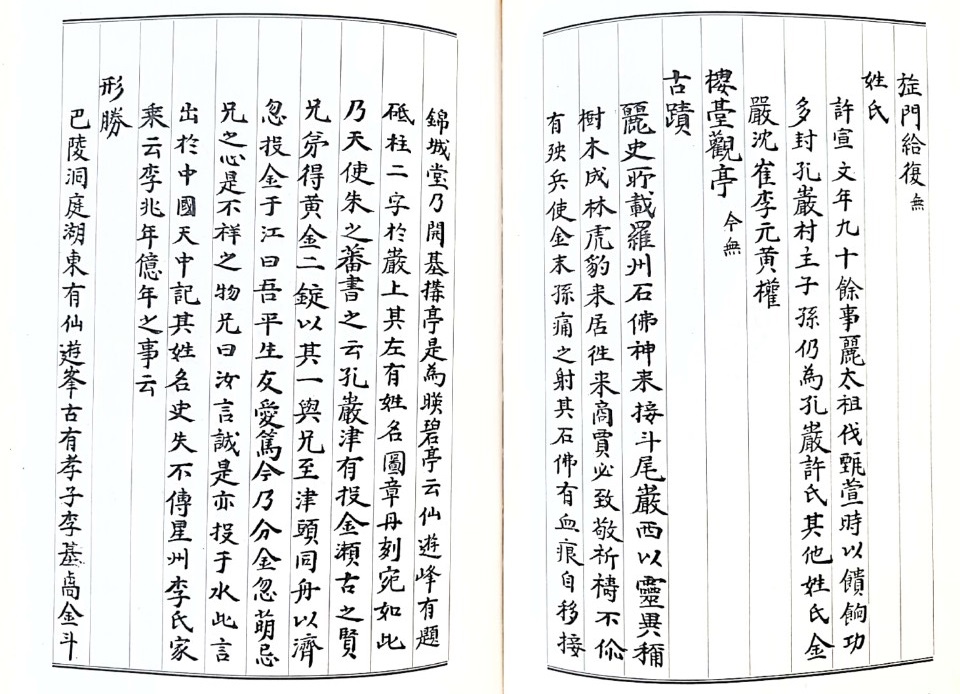 旌門給復 無
姓氏
許宣文年九十餘事麗太祖伐甄萱時以饋餉功
多封孔巖村主子孫仍為孔巖許氏其他姓氏金
嚴沈崔李元黃權
樓臺觀亭 今無
古蹟
麗史所載羅州石佛神来接斗尾巖西以靈異稱
樹木成林虎豹来居徃来商賈必致敬祈禱不偷
有殃兵使金末孫痛之射其石佛有血痕自移接
錦城堂乃開基搆亭是為暎碧亭云仙遊峰有題
砥柱二字於巖上其左有姓名圖章丹刻宛如此
乃天使朱之蕃書之云孔巖津有投金瀬古之賢
兄弟得黃金二錠以其一與兄至津頭同舟以濟
忽投金于江曰吾平生友愛篤今乃分金忽萌忌
兄之心是不祥之物兄曰汝言誠是亦投于水此言
出於中國天中記其姓名史失不傳星州李氏家
乘云李兆年億年之事云
形勝
巴陵洞庭湖東有仙遊峯古有孝子李基卨金斗